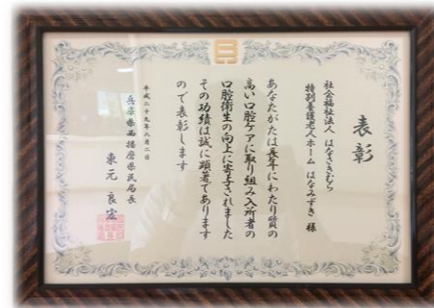 表彰
社会福祉法人 はなさきむら
特別養護老人ホーム はなみずき 様
あなたがたは長年にわたり質の
高い口腔ケアに取り組み入所者の
口腔衛生の向上に寄与されました
その功績は誠に顕著であります
ので表彰します
平成二十九年六月二日
兵庫県西播磨県民局長
東元 良宏